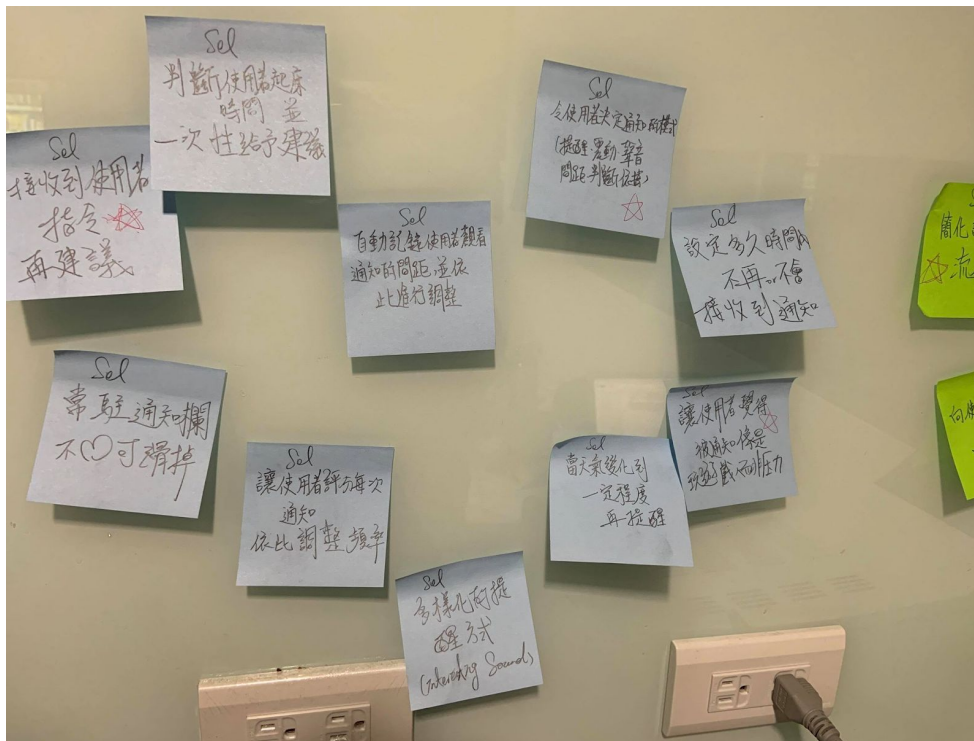 Sol
判斷使用者起床
時間 並
一次性給予建議
Sol
接收到使用者
指令
再建議
Sol
自動記錄使用者觀看
通知的間距,並依
此進行調整
Sol
令使用者決定通知的模式
(提醒.震動.聲音
間距判斷依據)
Sol
設定多久時間內
不再or不會
接收到通知
簡化
流
Sol
常駐通知欄
不可滑掉
Sol
讓使用者評分每次
通知
依比調整頻率
Sol
當天氣變化到
一定程度
再提醒
Sol
讓使用者覺得
被通知像是
玩遊戲而非壓力
向使
Sol
多樣化的提
醒方式
(Interesting Sounds)